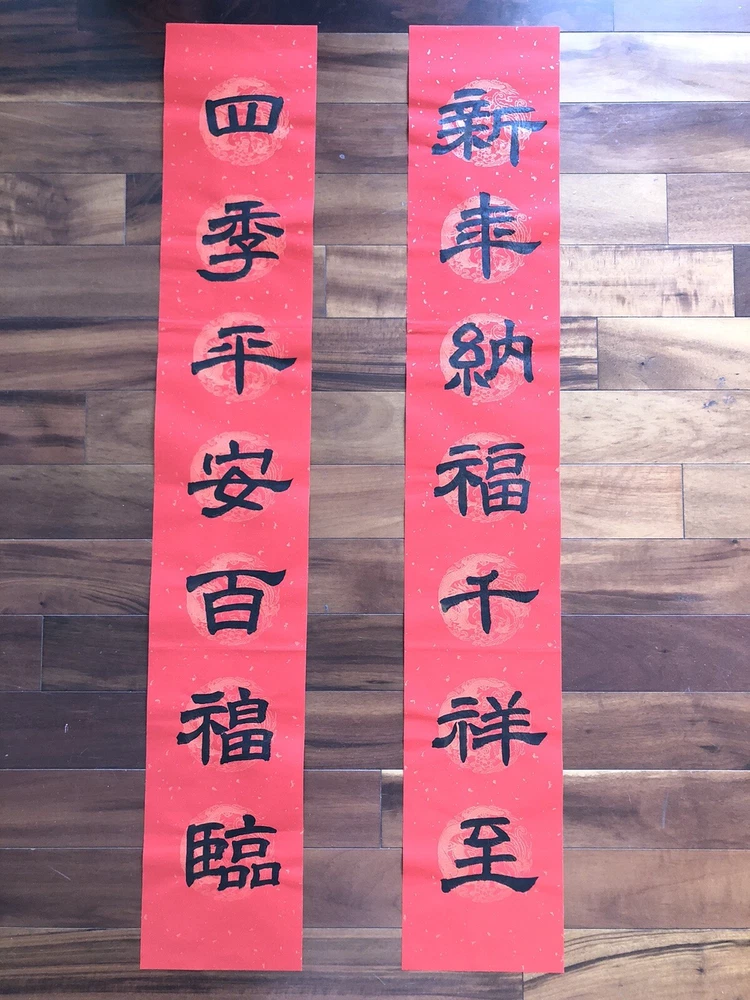 新年納福千祥至
四季平安百福臨